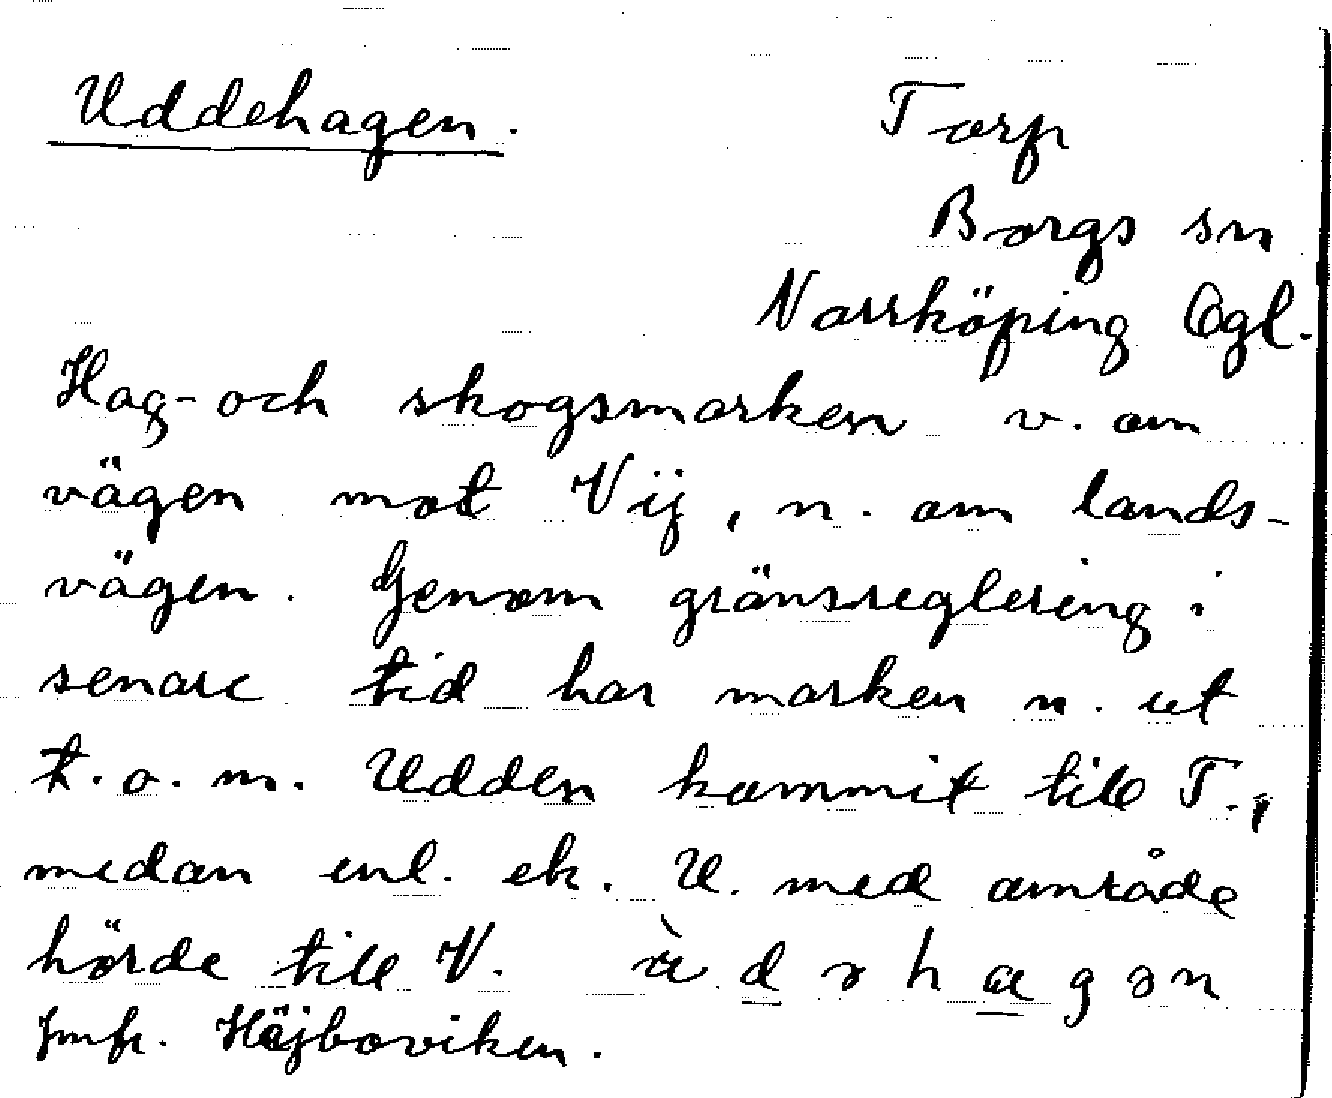 Uddehagen.
Torp
Borgs sn
Norrköping Ögl.
Hag- och skogsmarken v. om
vägen mot Vij, n. om lands-
vägen. Genom gränsreglering i
senare tid har marken n. ut
t.o.m. Udden kommit till T.,
medan enl. ek. U. med område
hörde till V. ὰ d ɘ h a g ɘ n
Jmfr. Höjboviken.